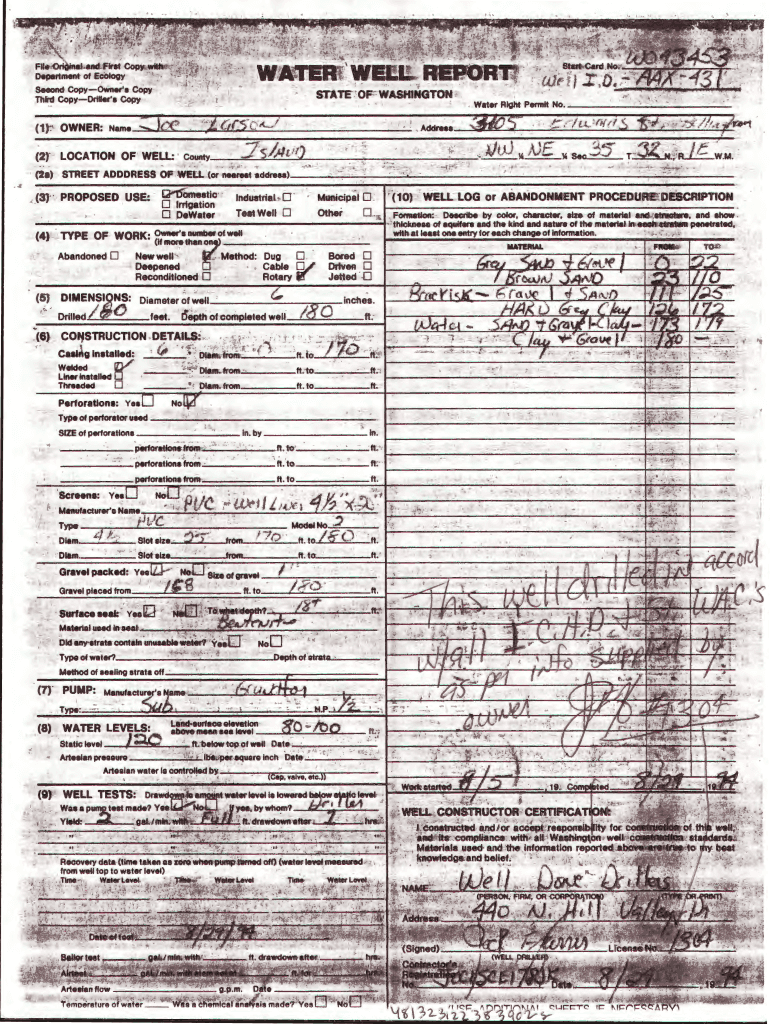 File Original and First Copy with
Department of Ecology
Second Copy—Owner's Copy
Third Copy—Driller's Copy
WATER WELL REPORT
STATE OF WASHINGTON
Start Card No. W043453
Well I.D.- AAX-431
Water Right Permit No.
(1) OWNER: Name Joe Larson Address 3105 Edwards St.
(2) LOCATION OF WELL: County Island NW ¼ NE ¼ Sec 35 T. 32 N., R. 1E W.M.
(2a) STREET ADDDRESS OF WELL (or nearest address)
(3) PROPOSED USE: Domestic Industrial Municipal
Irrigation
DeWater Test Well Other
(4) TYPE OF WORK: Owner's number of well
(if more than one)
Abandoned New well Method: Dug Bored
Deepened Cable Driven
Reconditioned Rotary Jetted
(5) DIMENSIONS: Diameter of well 6 inches.
Drilled 180 feet. Depth of completed well 180 ft.
(6) CONSTRUCTION DETAILS:
Casing installed: 6 Diam. from 0 ft. to 170 ft.
Welded Diam. from ft. to ft.
Liner installed
Threaded Diam. from ft. to ft.
Perforations: Yes No
Type of perforator used
SIZE of perforations in. by in.
perforations from ft. to ft.
perforations from ft. to ft.
perforations from ft. to ft.
Screens: Yes No
Manufacturer's Name PVC - Well Liner 4½" x 2"
Type PVC Model No. 2
Diam. 4½ Slot size 25 from 170 ft. to 180 ft.
Diam. Slot size from ft. to ft.
Gravel packed: Yes No Size of gravel
Gravel placed from 168 ft. to 180 ft.
Surface seal: Yes No To what depth? 18+ ft.
Material used in seal Bentonite
Did any strata contain unusable water? Yes No
Type of water? Depth of strata
Method of sealing strata off
(7) PUMP: Manufacturer's Name Grundfos
Type: Sub H.P. 1/2
(8) WATER LEVELS: Land-surface elevation
above mean sea level 80-100 ft.
Static level 120 ft. below top of well Date
Artesian pressure lbs. per square inch Date
Artesian water is controlled by
(Cap, valve, etc.))
(9) WELL TESTS: Drawdown is amount water level is lowered below static level
Was a pump test made? Yes No If yes, by whom? Driller
Yield: 2 gal./min. with Full ft. drawdown after 1 hrs.
" " " "
" " " "
Recovery data (time taken as zero when pump turned off) (water level measured
from well top to water level)
Time Water Level Time Water Level Time Water Level
Date of test 8/29/94
Bailer test gal./min. with ft. drawdown after hrs.
Airtest gal./min. with stem set at ft. for hrs.
Artesian flow g.p.m. Date
Temperature of water Was a chemical analysis made? Yes No
(10) WELL LOG or ABANDONMENT PROCEDURE DESCRIPTION
Formation: Describe by color, character, size of material and structure, and show
thickness of aquifers and the kind and nature of the material in each stratum penetrated,
with at least one entry for each change of information.
MATERIAL FROM TO
Grey SAND & Gravel 0 22
Brown SAND 23 110
Brackish - Gravel & SAND 111 125
HARD Grey Clay 126 172
Water - SAND & Gravel & Clay - 173 179
Clay & Gravel 180 -
This well drilled in accord
W/all I.C.H.D & St. WAC's
as per info supplied by
owner #1304
Work started 8/5, 19. Completed 8/29, 1994
WELL CONSTRUCTOR CERTIFICATION:
I constructed and/or accept responsibility for construction of this well,
and its compliance with all Washington well construction standards.
Materials used and the information reported above are true to my best
knowledge and belief.
NAME Well Done Drillers
(PERSON, FIRM, OR CORPORATION) (TYPE OR PRINT)
Address 440 N. Hill Valley Dr
(Signed) License No. 1304
(WELL DRILLER)
Contractor's
Registration
No. Date 8/ 1994
(USE ADDITIONAL SHEETS IF NECESSARY)